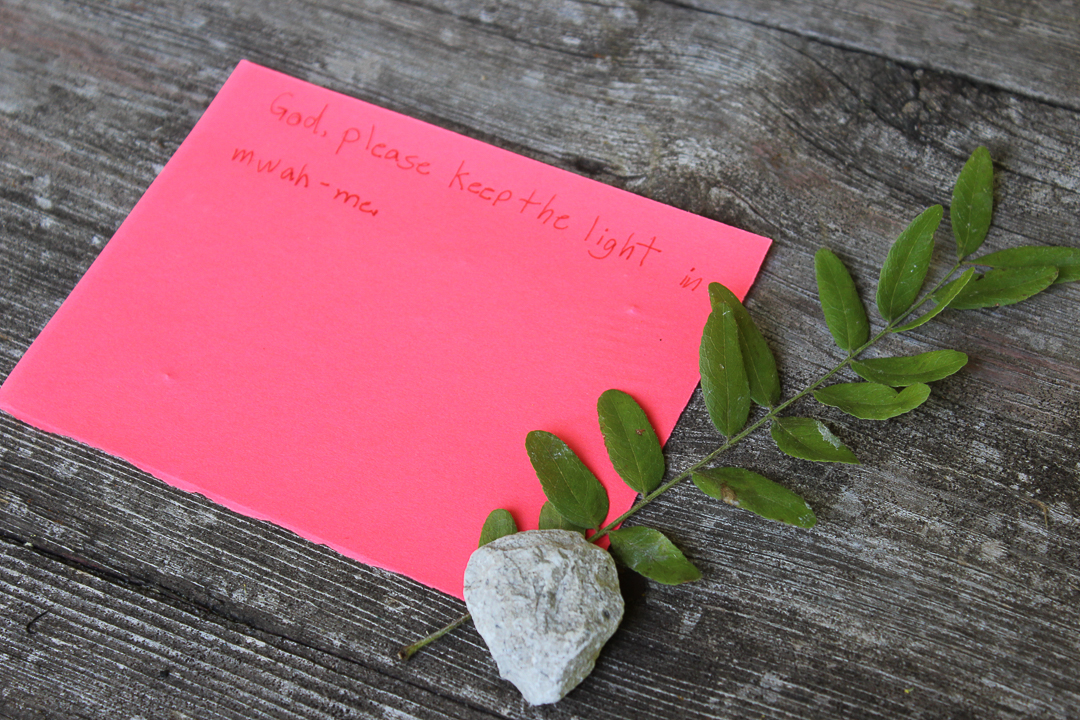 God, please keep the light in
mwah-me.